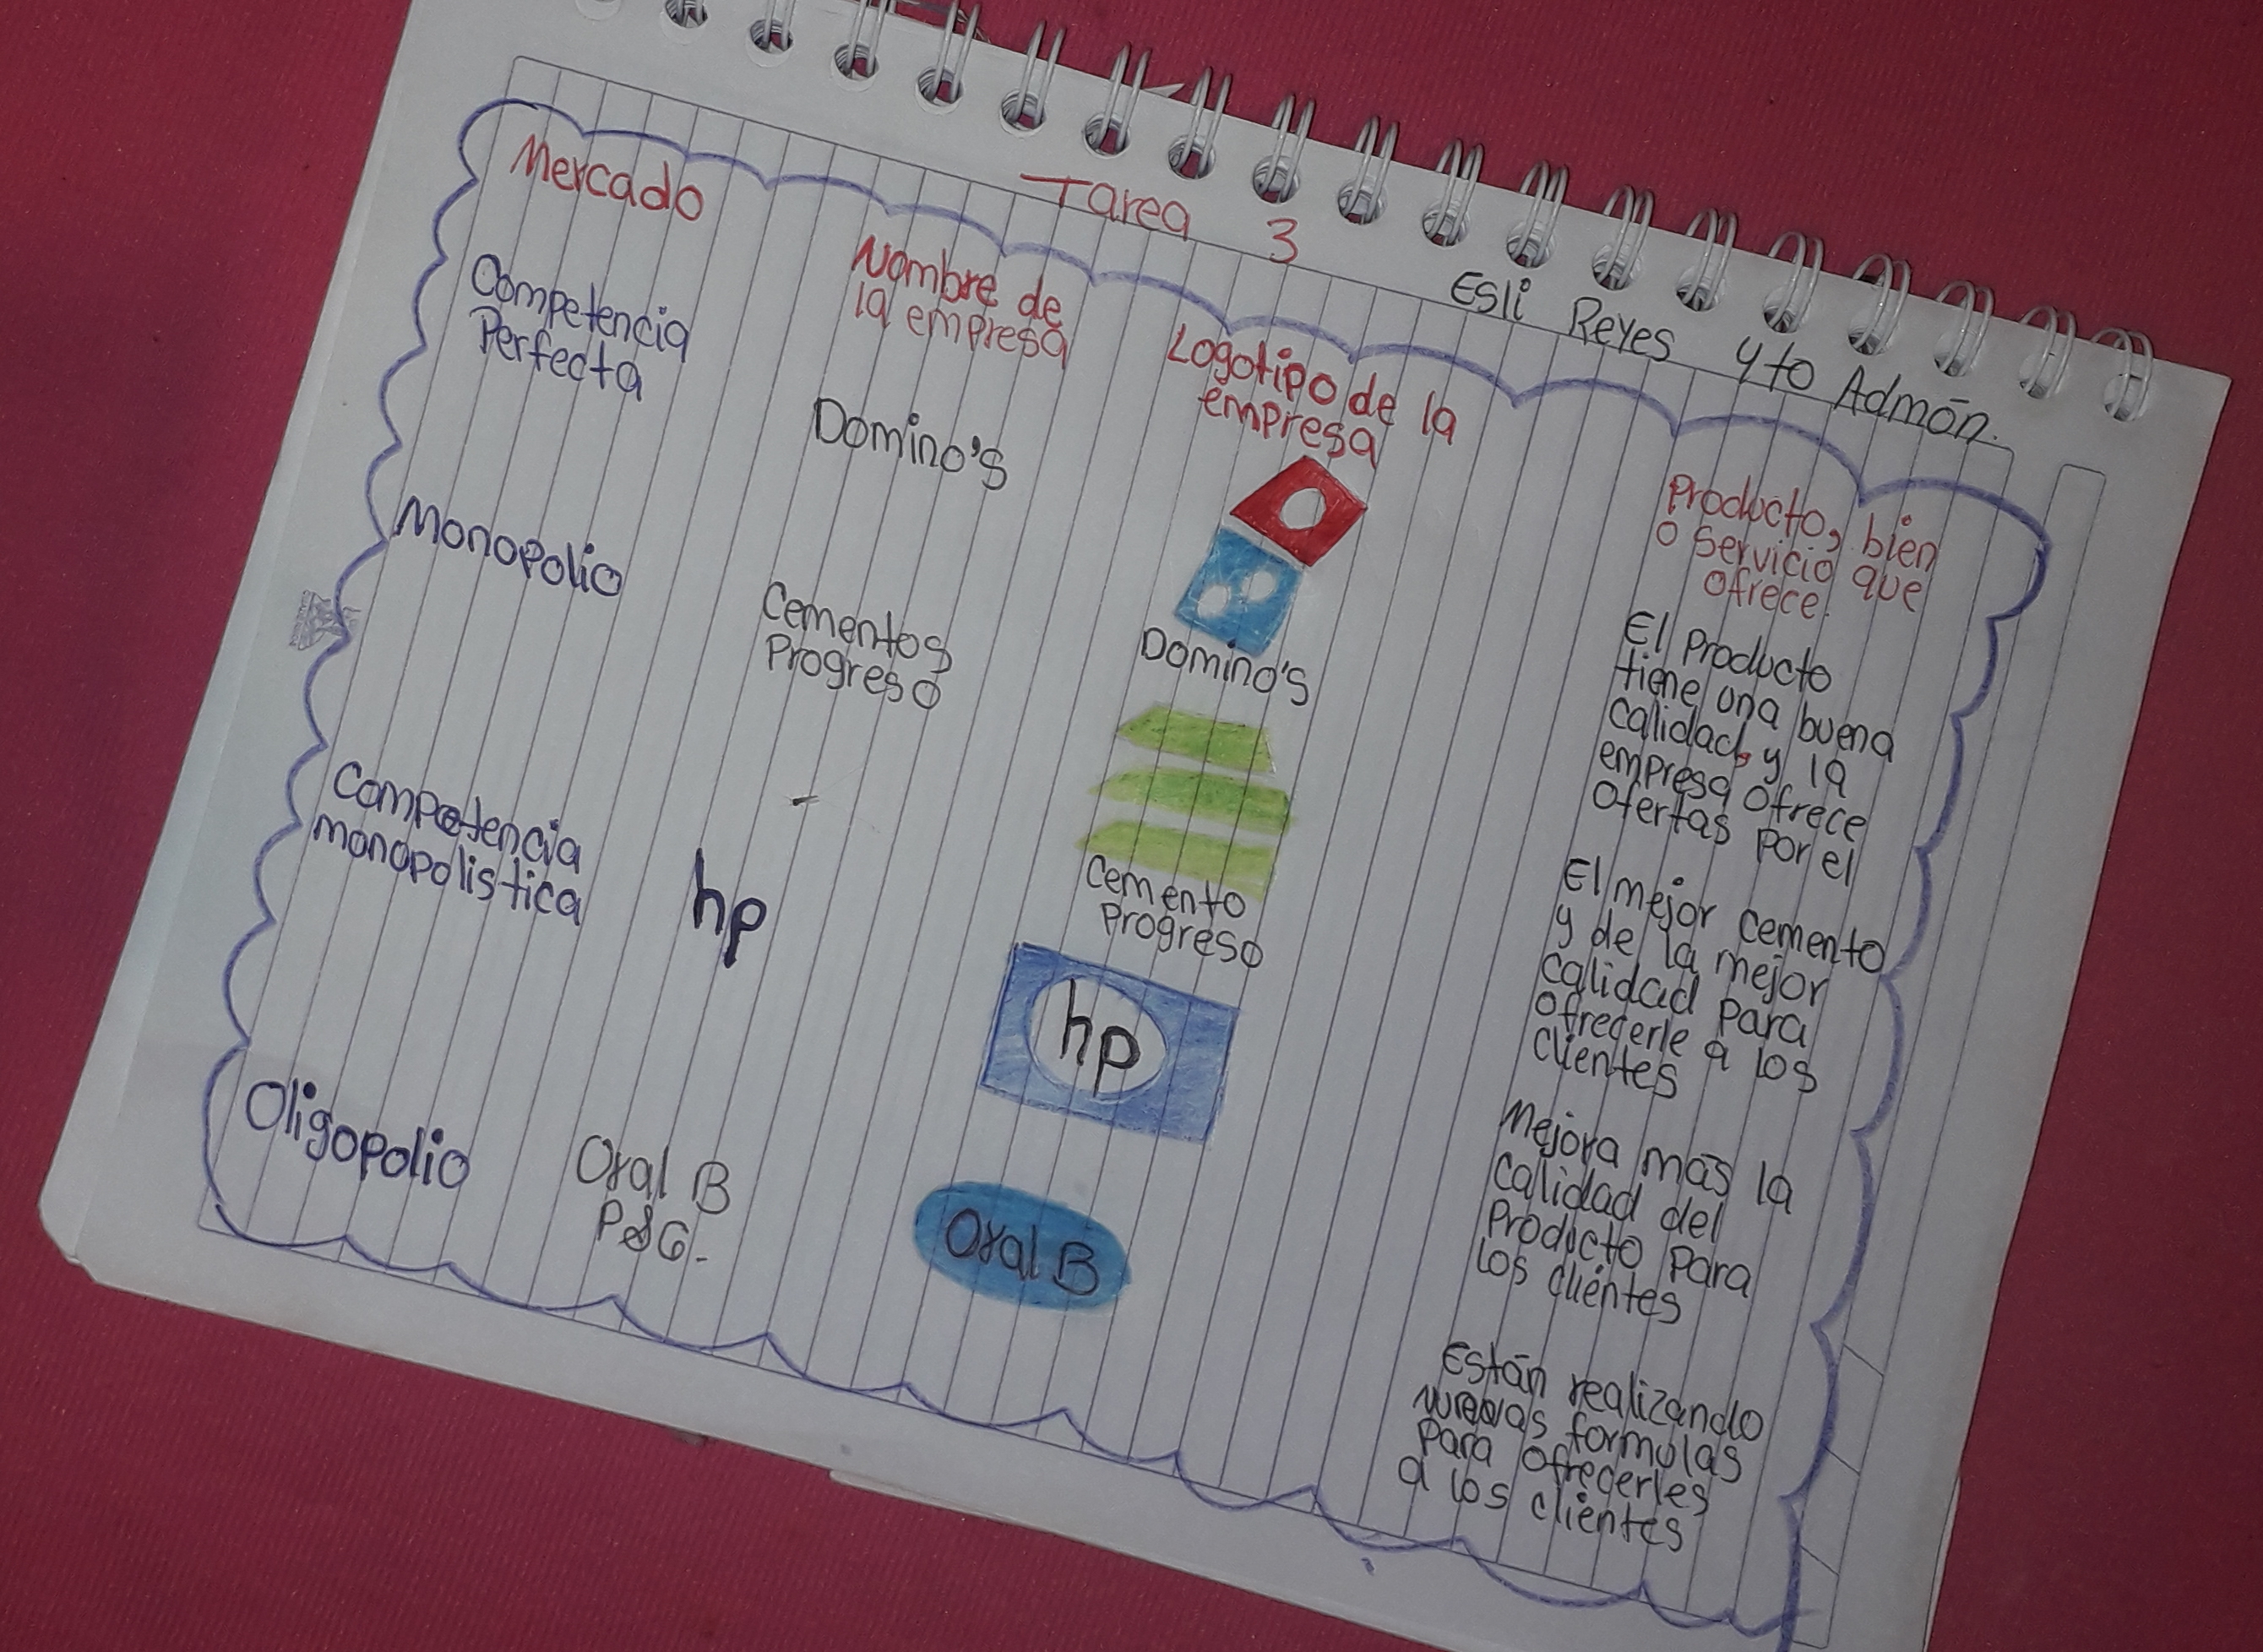 Tarea 3
Esli Reyes 4to Admón.
Mercado
Nombre de
la empresa
Logotipo de la
empresa
Producto, bien
o servicio que
ofrece.
Competencia
Perfecta
Domino's
Domino's
El Producto
tiene una buena
calidad y la
empresa ofrece
ofertas por el
Monopolio
Cementos
Progreso
Cemento
Progreso
El mejor cemento
y de la mejor
calidad Para
ofrecerle a los
clientes
Competencia
monopolistica
hp
hp
Mejora más la
calidad del
Producto Para
los clientes
Oligopolio
Oral B
P&G.
Oral B
Están realizando
nuevas formulas
Para ofrecerles
a los clientes